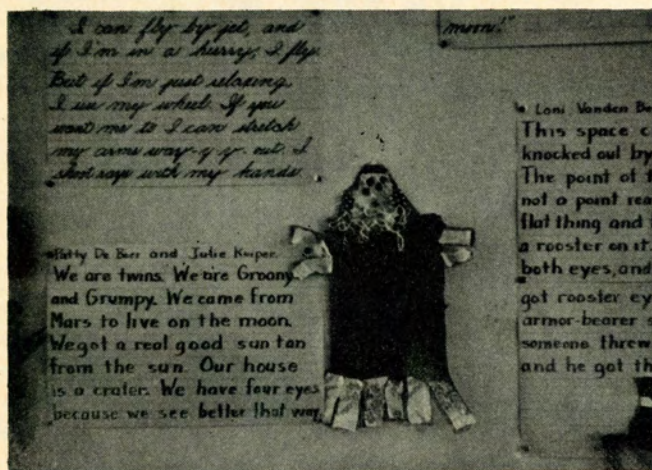 I can fly by jet, and
if I'm in a hurry, I fly.
But if I'm just relaxing,
I use my wheel. If you
want me to I can stretch
my arms way-y-y- out. I
shoot rays with my hands.
Patty De Boer and Julie Kuiper.
We are twins. We are Groany
and Grumpy. We came from
Mars to live on the moon.
We got a real good sun tan
from the sun. Our house
is a crater. We have four eyes
because we see better that way.
moon!"
Loni Vanden Be
This space c
knocked out by
The point of
not a point rea
flat thing and
a rooster on it.
both eyes, and
got rooster ey
armor-bearer s
someone threw
and he got th